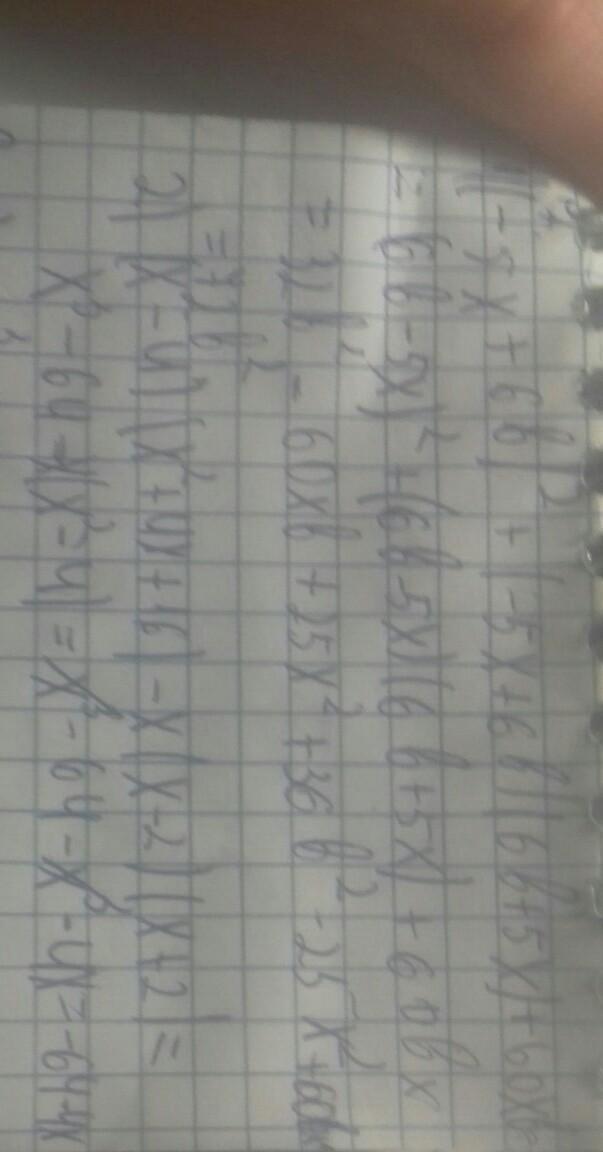 1) (-5x + 6b)² + (-5x+6b)(6b+5x)+60xb
= (6b-5x)² +(6b-5x)(6b+5x)+60bx
= 36b² - 60xb + 25x² +36b² -25x²+60bx
= 72b²
2) (x-4)(x²+4x+16)-x(x-2)(x+2)=
x³-64-x(x²-4)=x³-64-x³-4x=-64+4x